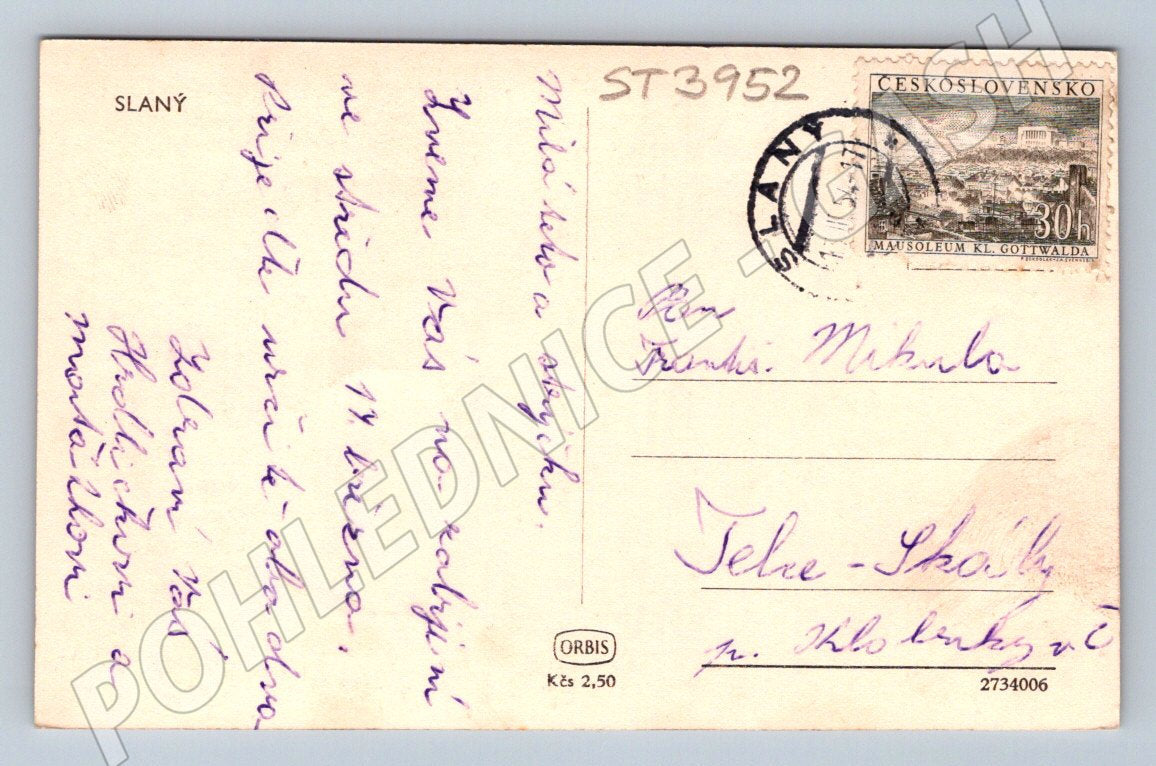 SLANÝ
ST3952
ČESKOSLOVENSKO
30h
MAUSOLEUM KL. GOTTWALDA
SLANÝ
Milá teto a strýčku.
Zveme Vás na zabíjení
ve středu 17. března.
Přijeďte určitě oba dva
Zdraví Vás
Hrdličkovi a
Pan
Frant. Mikula
Telce - Skály
p. Klobuky v Č
ORBIS
Kčs 2,50
2734006
POHLEDNICE - C